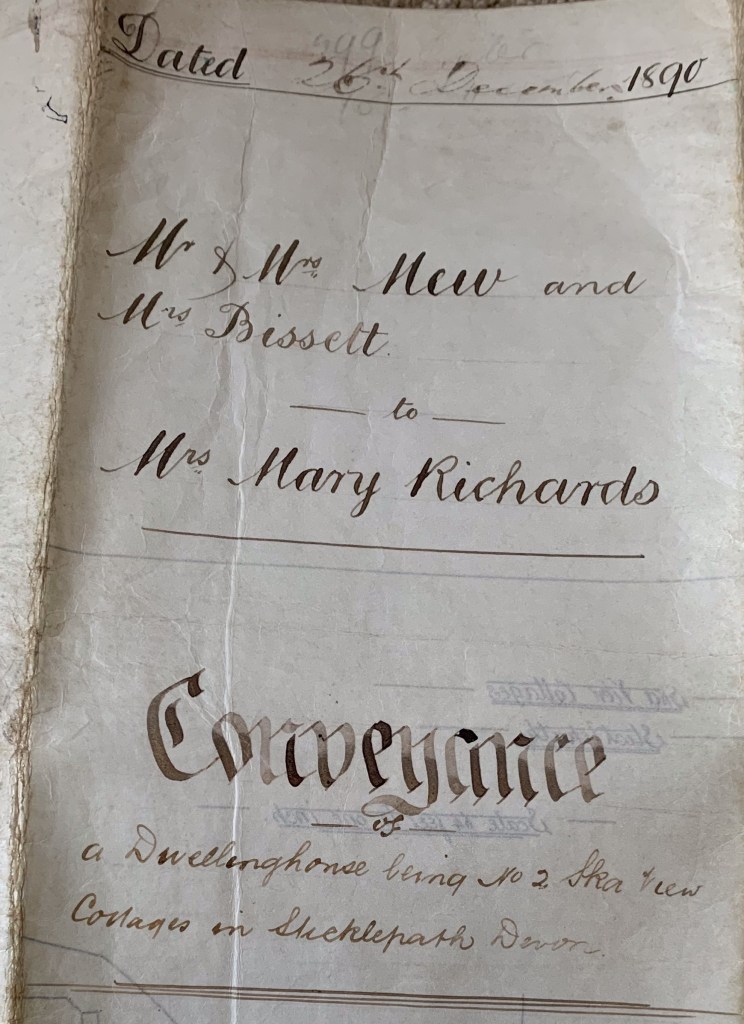 Dated 26th December 1890
Mr & Mrs Mew and
Mrs Bissett
to
Mrs Mary Richards
Conveyance
of
a Dwellinghouse being No 2 Ska View
Cottages in Sticklepath Devon.